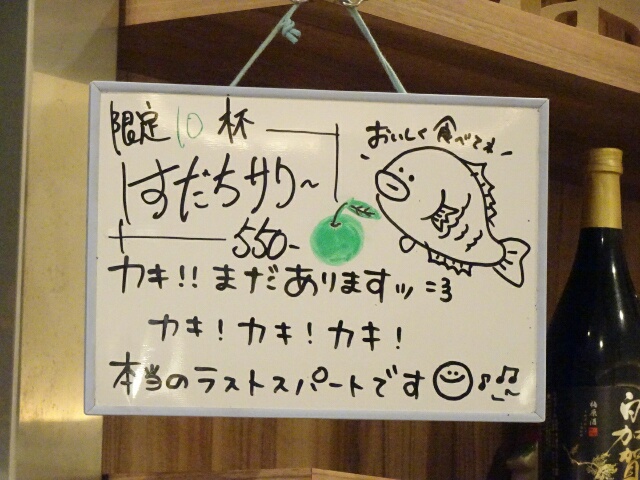 限定10杯
おいしく食べてネ
すだちサワ～
550-
カキ!!まだありますッ=3
カキ!カキ!カキ!
本当のラストスパートです
梅原酒
白加賀